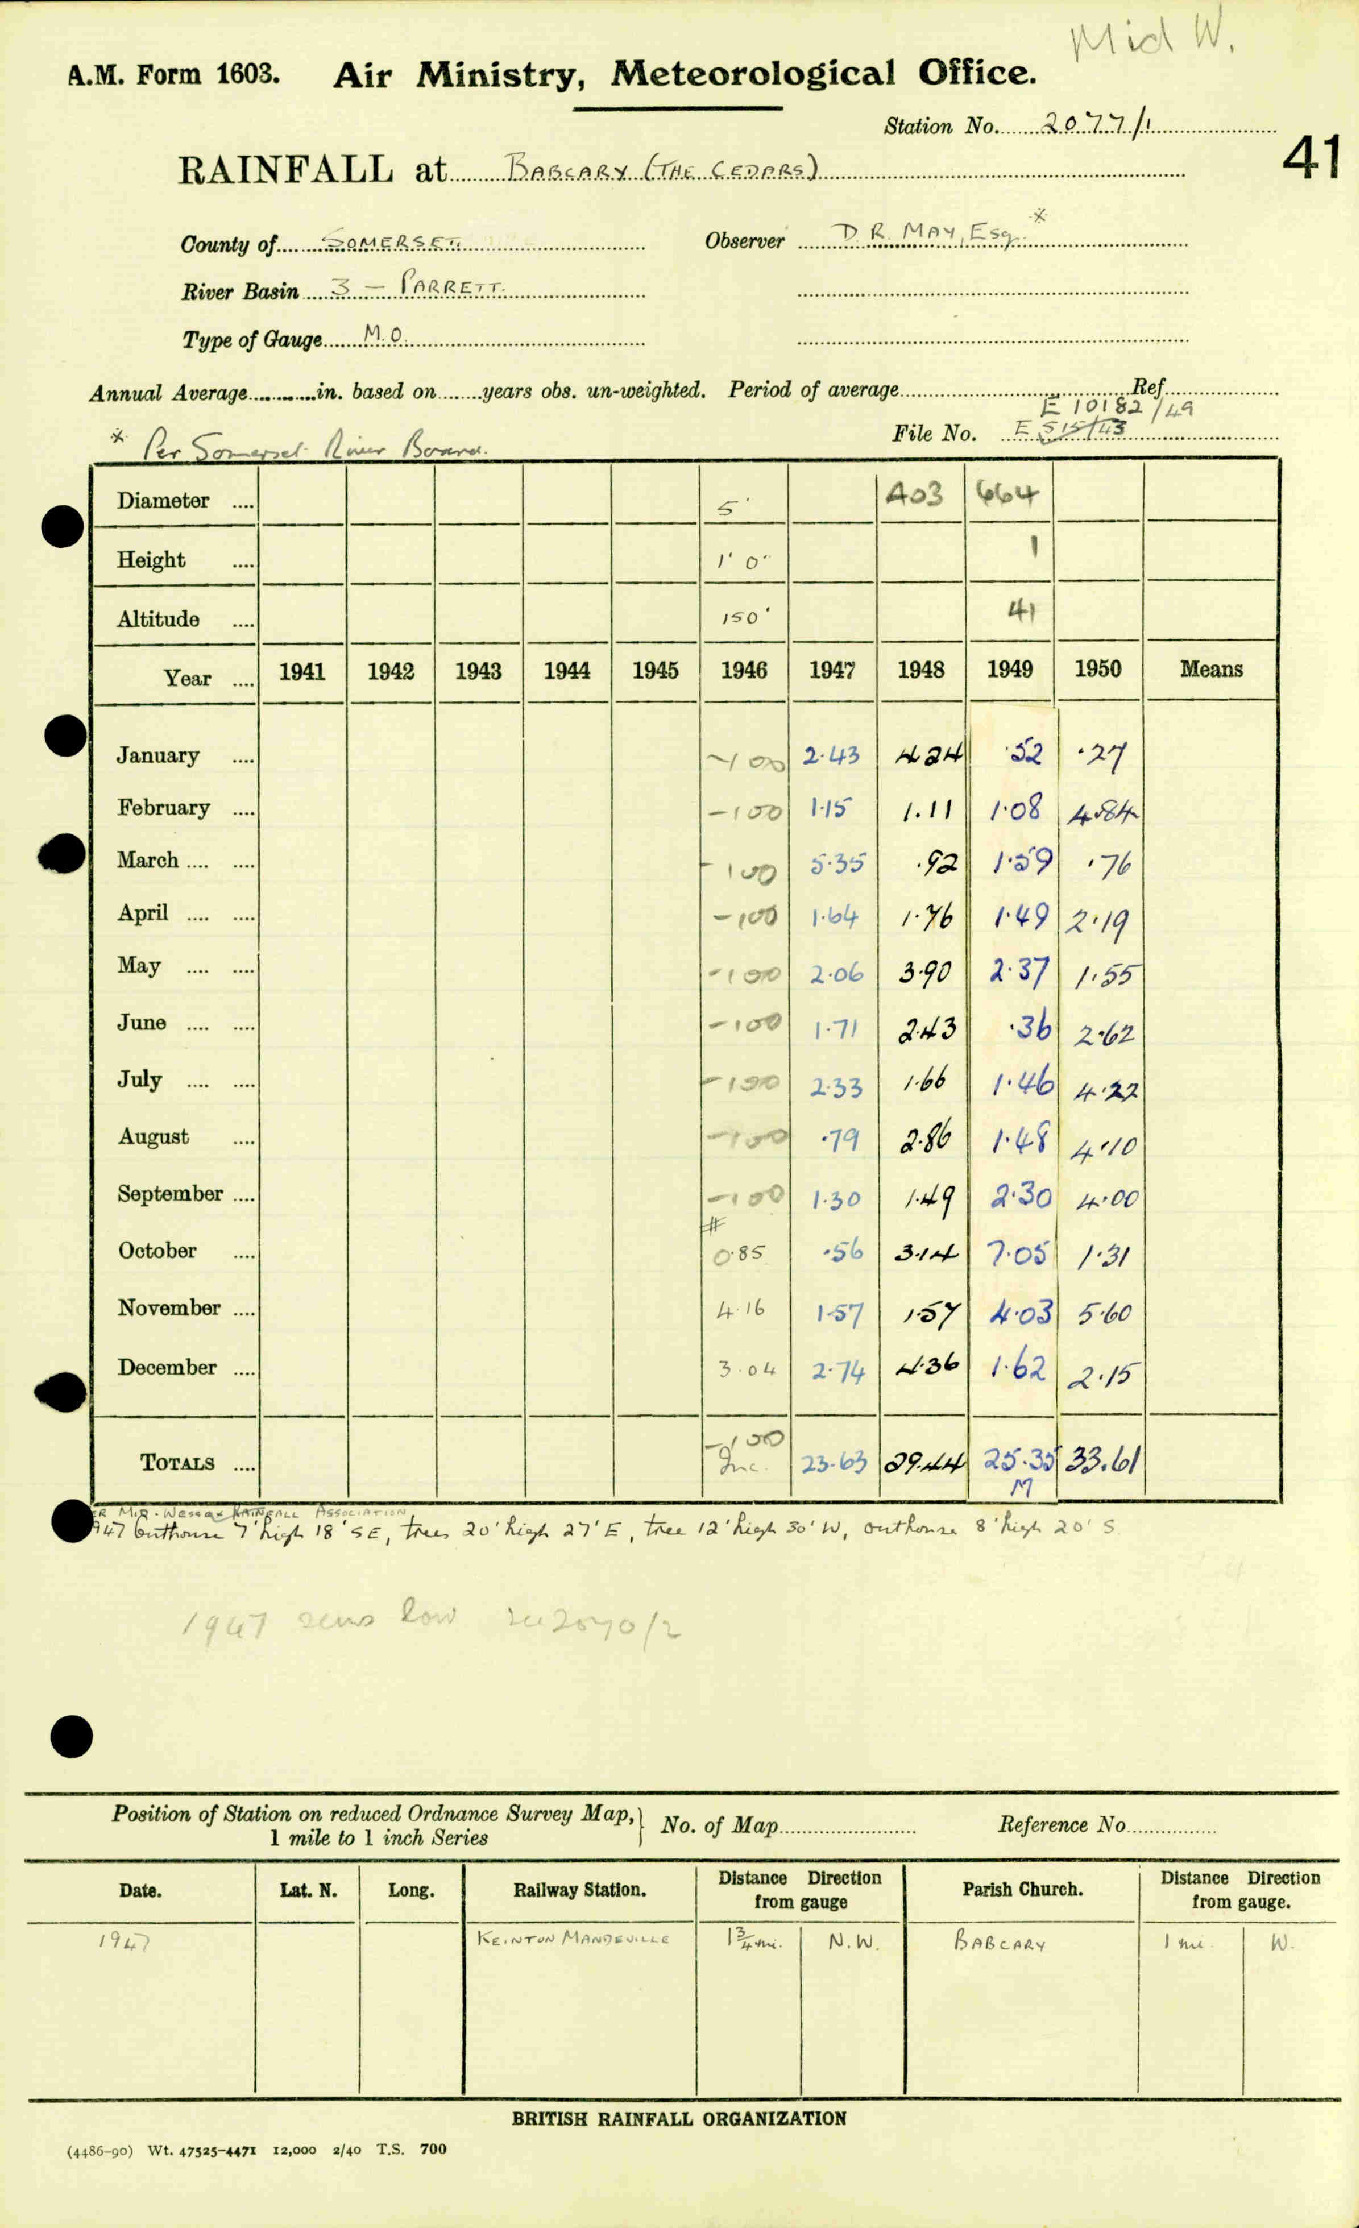 Mid W.
A.M. Form 1603. Air Ministry, Meteorological Office.
Station No. 2077/1
41
RAINFALL at BABCARY (THE CEDARS)
County of SOMERSET. Observer D.R. MAY, Esq. *
River Basin 3 — PARRETT.
Type of Gauge M.O.
Annual Average in. based on years obs. un-weighted. Period of average Ref
E 10182/49
File No. E 515/43
* Per Somerset River Board.
Diameter 5" 403 664
Height 1' 0" 1
Altitude 150' 41
Year 1941 1942 1943 1944 1945 1946 1947 1948 1949 1950 Means
January -100 2.43 4.24 .52 .27
February -100 1.15 1.11 1.08 4.84
March -100 5.35 .92 1.59 .76
April -100 1.64 1.76 1.49 2.19
May -100 2.06 3.90 2.37 1.55
June -100 1.71 2.43 .36 2.62
July -100 2.33 1.66 1.46 4.22
August -100 .79 2.86 1.48 4.10
September -100 1.30 1.49 2.30 4.00
#
October 0.85 .56 3.14 7.05 1.31
November 4.16 1.57 1.57 4.03 5.60
December 3.04 2.74 4.36 1.62 2.15
-100
TOTALS Inc. 23.63 29.44 25.35 33.61
M
PER MID-WESSEX RAINFALL ASSOCIATION
1947 Outhouse 7' high 18' SE, trees 20' high 27' E, tree 12' high 30' W, outhouse 8' high 20' S
1947 seems low see 2070/2
Position of Station on reduced Ordnance Survey Map, 1 mile to 1 inch Series } No. of Map Reference No
Date. Lat. N. Long. Railway Station. Distance Direction from gauge Parish Church. Distance Direction from gauge.
1947 KEINTON MANDEVILLE 1¾ mi. N.W. BABCARY 1 mi. W.
BRITISH RAINFALL ORGANIZATION
(4486-90) Wt. 47525-4471 12,000 2/40 T.S. 700